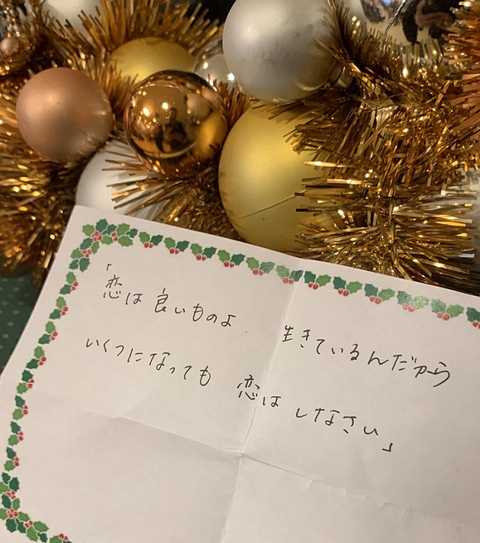 「恋は良いものよ 生きているんだから
いくつになっても 恋は しなさい」